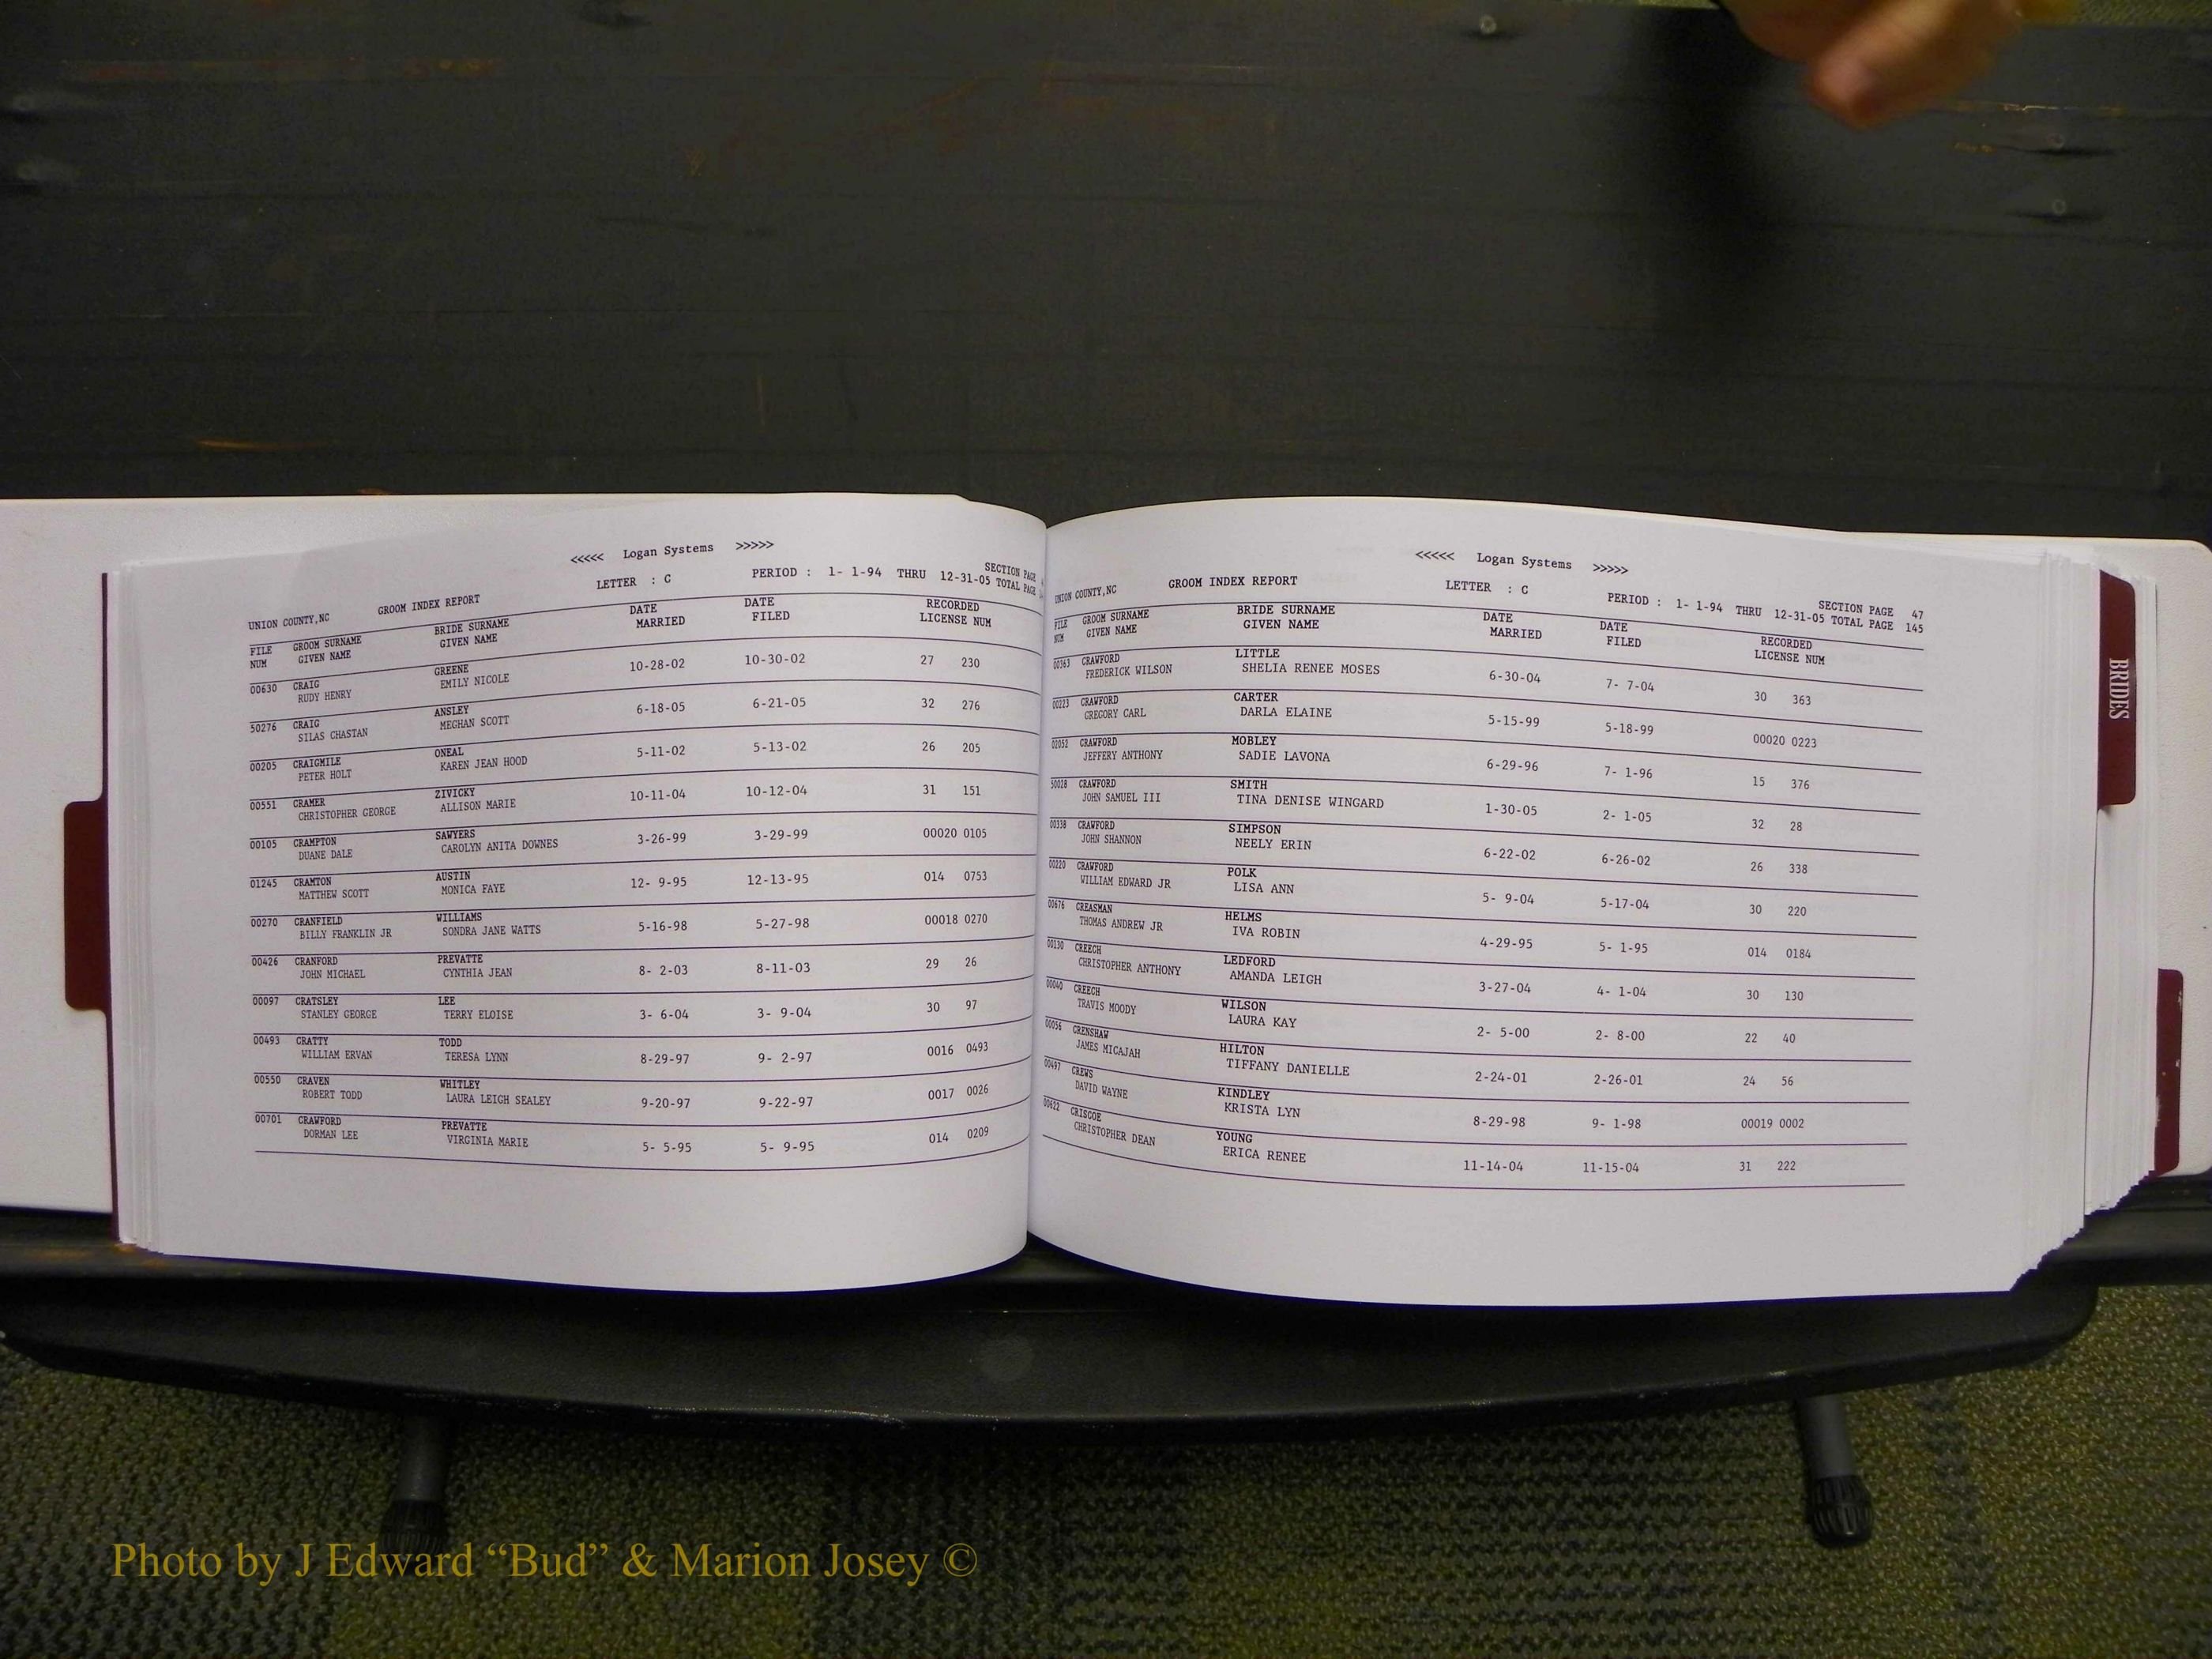 <<<<< Logan Systems >>>>>
UNION COUNTY,NC GROOM INDEX REPORT LETTER : C PERIOD : 1- 1-94 THRU 12-31-05 SECTION PAGE
TOTAL PAGE
FILE GROOM SURNAME BRIDE SURNAME DATE DATE RECORDED
NUM GIVEN NAME GIVEN NAME MARRIED FILED LICENSE NUM
00630 CRAIG GREENE 10-28-02 10-30-02 27 230
RUDY HENRY EMILY NICOLE
50276 CRAIG ANSLEY 6-18-05 6-21-05 32 276
SILAS CHASTAN MEGHAN SCOTT
00205 CRAIGMILE ONEAL 5-11-02 5-13-02 26 205
PETER HOLT KAREN JEAN HOOD
00551 CRAMER ZIVICKY 10-11-04 10-12-04 31 151
CHRISTOPHER GEORGE ALLISON MARIE
00105 CRAMPTON SAWYERS 3-26-99 3-29-99 00020 0105
DUANE DALE CAROLYN ANITA DOWNES
01245 CRAMTON AUSTIN 12- 9-95 12-13-95 014 0753
MATTHEW SCOTT MONICA FAYE
00270 CRANFIELD WILLIAMS 5-16-98 5-27-98 00018 0270
BILLY FRANKLIN JR SONDRA JANE WATTS
00426 CRANFORD PREVATTE 8- 2-03 8-11-03 29 26
JOHN MICHAEL CYNTHIA JEAN
00097 CRATSLEY LEE 3- 6-04 3- 9-04 30 97
STANLEY GEORGE TERRY ELOISE
00493 CRATTY TODD 8-29-97 9- 2-97 0016 0493
WILLIAM ERVAN TERESA LYNN
00550 CRAVEN WHITLEY 9-20-97 9-22-97 0017 0026
ROBERT TODD LAURA LEIGH SEALEY
00701 CRAWFORD PREVATTE 5- 5-95 5- 9-95 014 0209
DORMAN LEE VIRGINIA MARIE
<<<<< Logan Systems >>>>>
UNION COUNTY,NC GROOM INDEX REPORT LETTER : C PERIOD : 1- 1-94 THRU 12-31-05 SECTION PAGE 47
TOTAL PAGE 145
FILE GROOM SURNAME BRIDE SURNAME DATE DATE RECORDED
NUM GIVEN NAME GIVEN NAME MARRIED FILED LICENSE NUM
00363 CRAWFORD LITTLE 6-30-04 7- 7-04 30 363
FREDERICK WILSON SHELIA RENEE MOSES
00223 CRAWFORD CARTER 5-15-99 5-18-99 00020 0223
GREGORY CARL DARLA ELAINE
02052 CRAWFORD MOBLEY 6-29-96 7- 1-96 15 376
JEFFERY ANTHONY SADIE LAVONA
50028 CRAWFORD SMITH 1-30-05 2- 1-05 32 28
JOHN SAMUEL III TINA DENISE WINGARD
00338 CRAWFORD SIMPSON 6-22-02 6-26-02 26 338
JOHN SHANNON NEELY ERIN
00220 CRAWFORD POLK 5- 9-04 5-17-04 30 220
WILLIAM EDWARD JR LISA ANN
00676 CREASMAN HELMS 4-29-95 5- 1-95 014 0184
THOMAS ANDREW JR IVA ROBIN
00130 CREECH LEDFORD 3-27-04 4- 1-04 30 130
CHRISTOPHER ANTHONY AMANDA LEIGH
00040 CREECH WILSON 2- 5-00 2- 8-00 22 40
TRAVIS MOODY LAURA KAY
00056 CRENSHAW HILTON 2-24-01 2-26-01 24 56
JAMES MICAJAH TIFFANY DANIELLE
00497 CREWS KINDLEY 8-29-98 9- 1-98 00019 0002
DAVID WAYNE KRISTA LYN
00622 CRISCOE YOUNG 11-14-04 11-15-04 31 222
CHRISTOPHER DEAN ERICA RENEE
BRIDES
Photo by J Edward “Bud” & Marion Josey ©